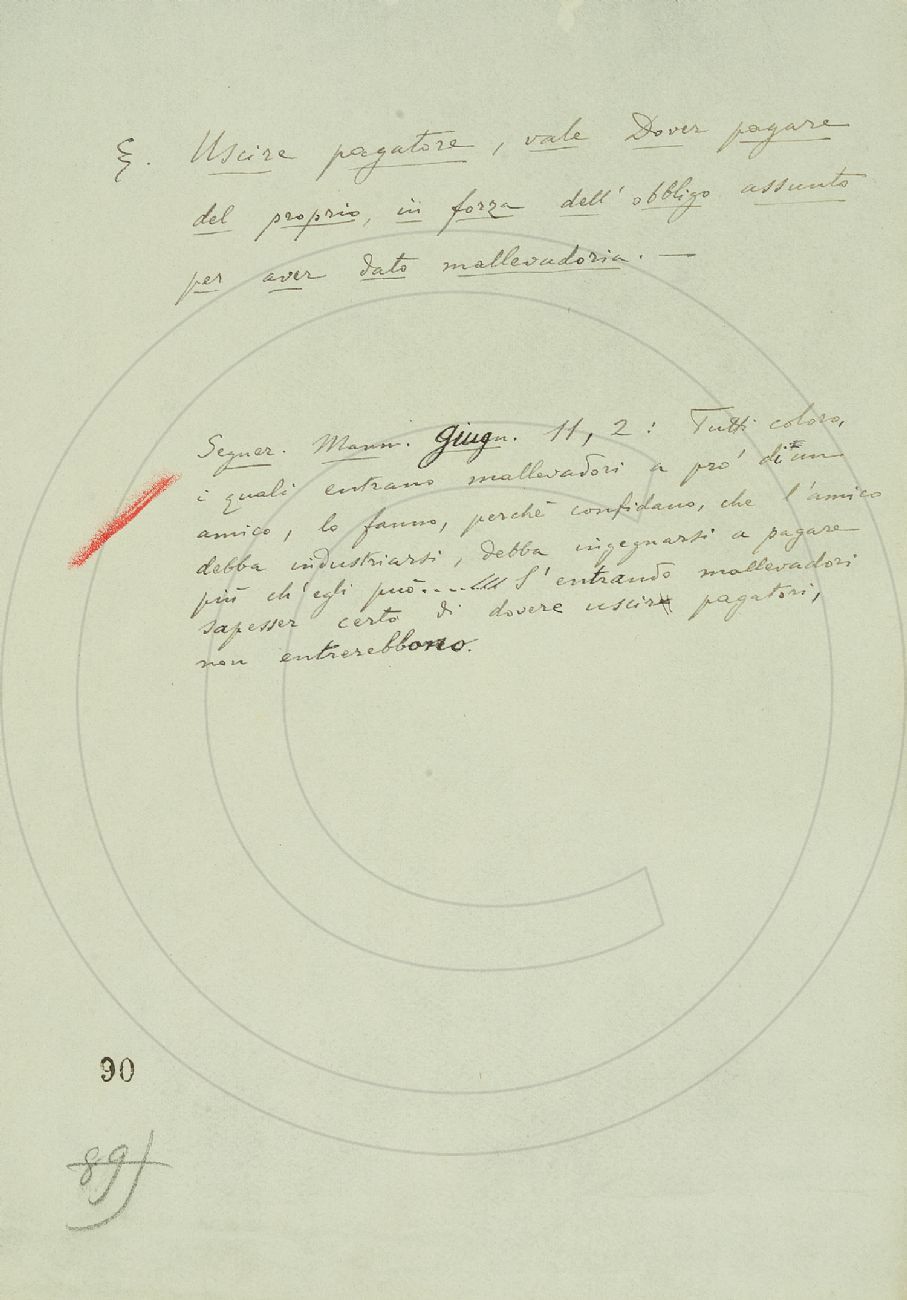 ξ. Uscire pagatore, vale Dover pagare
del proprio, in forza dell' obbligo assunto
per aver dato mallevadoria. —
Segner. Mann. Giugn. 11, 2: Tutti coloro,
i quali entrano mallevadori a pro' di un
amico, lo fanno, perchè confidano, che l'amico
debba industriarsi, debba ingegnarsi a pagare
più ch'egli può.... S'entrando mallevadori
sapesser certo di dovere uscir pagatori,
non entrerebbono.
90